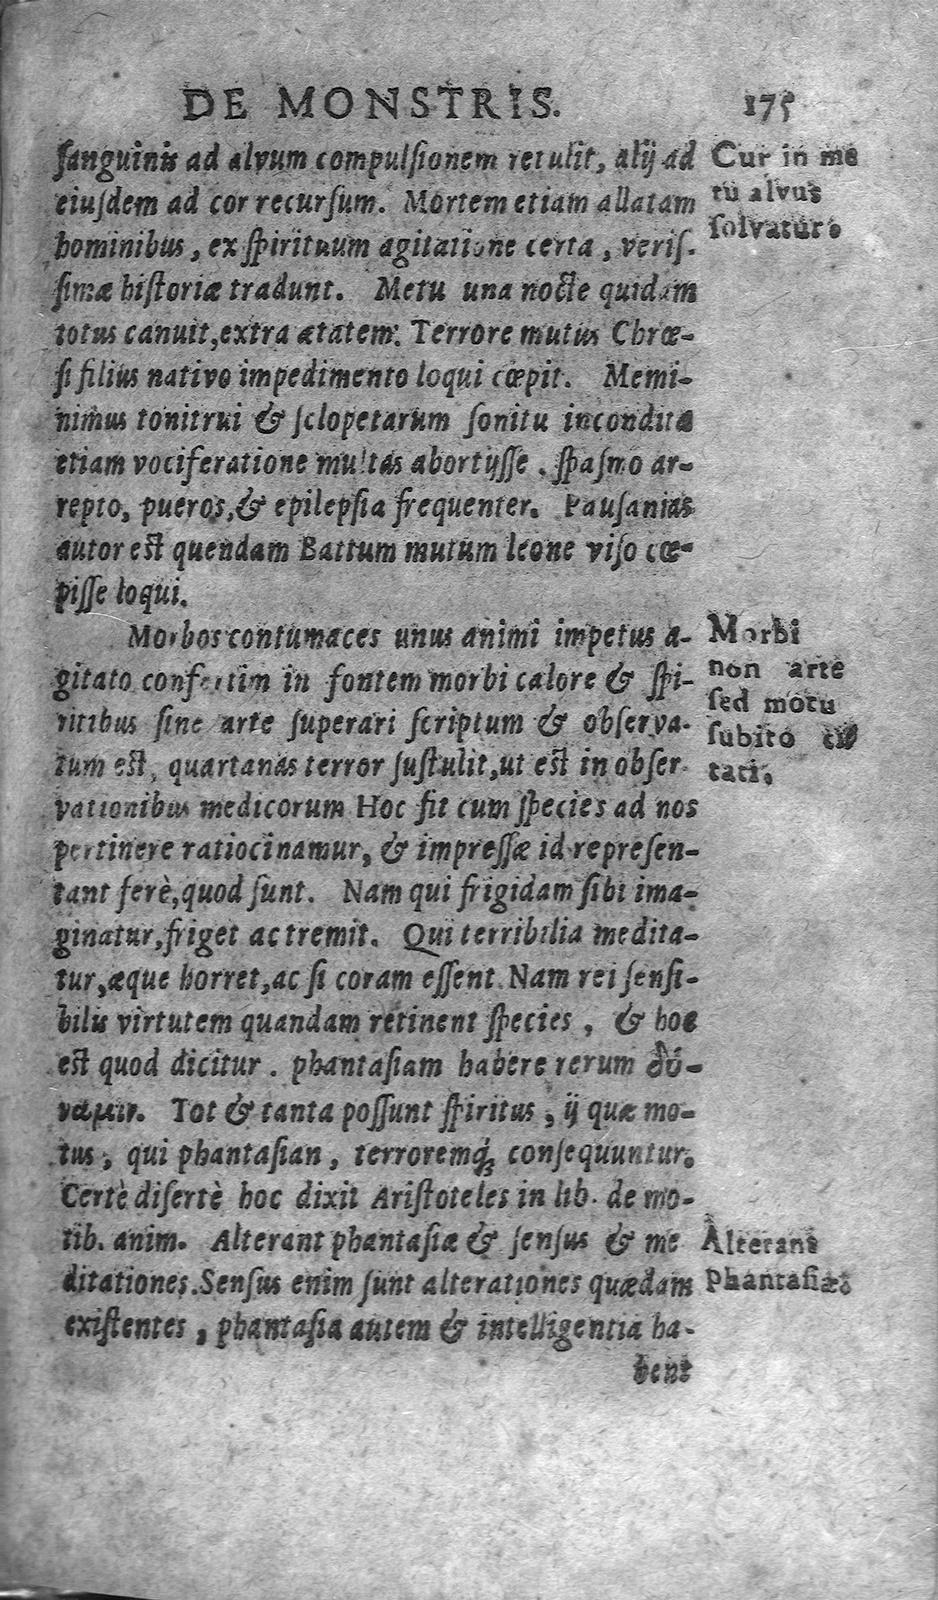 DE MONSTRIS. 175
ſanguinis ad alvum compulſionem retulit, alij ad
eiuſdem ad cor recurſum. Mortem etiam allatam
hominibus, ex ſpirituum agitatione certa, veriſ-
ſimæ hiſtoriæ tradunt. Metu una nocte quidam
totus canuit, extra ætatem. Terrore mutus Chrœ-
ſi filius nativo impedimento loqui cœpit. Memi-
nimus tonitrui & ſclopetarum ſonitu incondita
etiam vociferatione multas abortijſſe. ſpaſmo ar-
repto, pueros, & epilepſia frequenter. Pauſanias
autor eſt quendam Battum mutum leone viſo cœ-
piſſe loqui.
Cur in me
tu alvus
ſolvatur?
Morbos contumaces unus animi impetus a-
gitato confertim in fontem morbi calore & ſpi-
ritibus ſine arte ſuperari ſcriptum & obſerva-
tum eſt, quartanas terror ſuſtulit, ut eſt in obſer-
vationibus medicorum Hoc fit cum ſpecies ad nos
pertinere ratiocinamur, & impreſſæ id repreſen-
tant ferè, quod ſunt. Nam qui frigidam ſibi ima-
ginatur, friget ac tremit. Qui terribilia medita-
tur, æque horret, ac ſi coram eſſent. Nam rei ſenſi-
bilis virtutem quandam retinent ſpecies, & hoc
eſt quod dicitur. phantaſiam habere rerum δύ-
ναμιν. Tot & tanta poſſunt ſpiritus, ij quæ mo-
tus, qui phantaſian, terroremq́; conſequuntur.
Certè diſertè hoc dixit Ariſtoteles in lib. de mo-
tib. anim. Alterant phantaſiæ & ſenſus & me
ditationes. Senſus enim ſunt alterationes quædam
exiſtentes, phantaſia autem & intelligentia ha-
bent
Morbi
non arte
ſed motu
ſubito
tati.
Alterans
Phantaſiæ